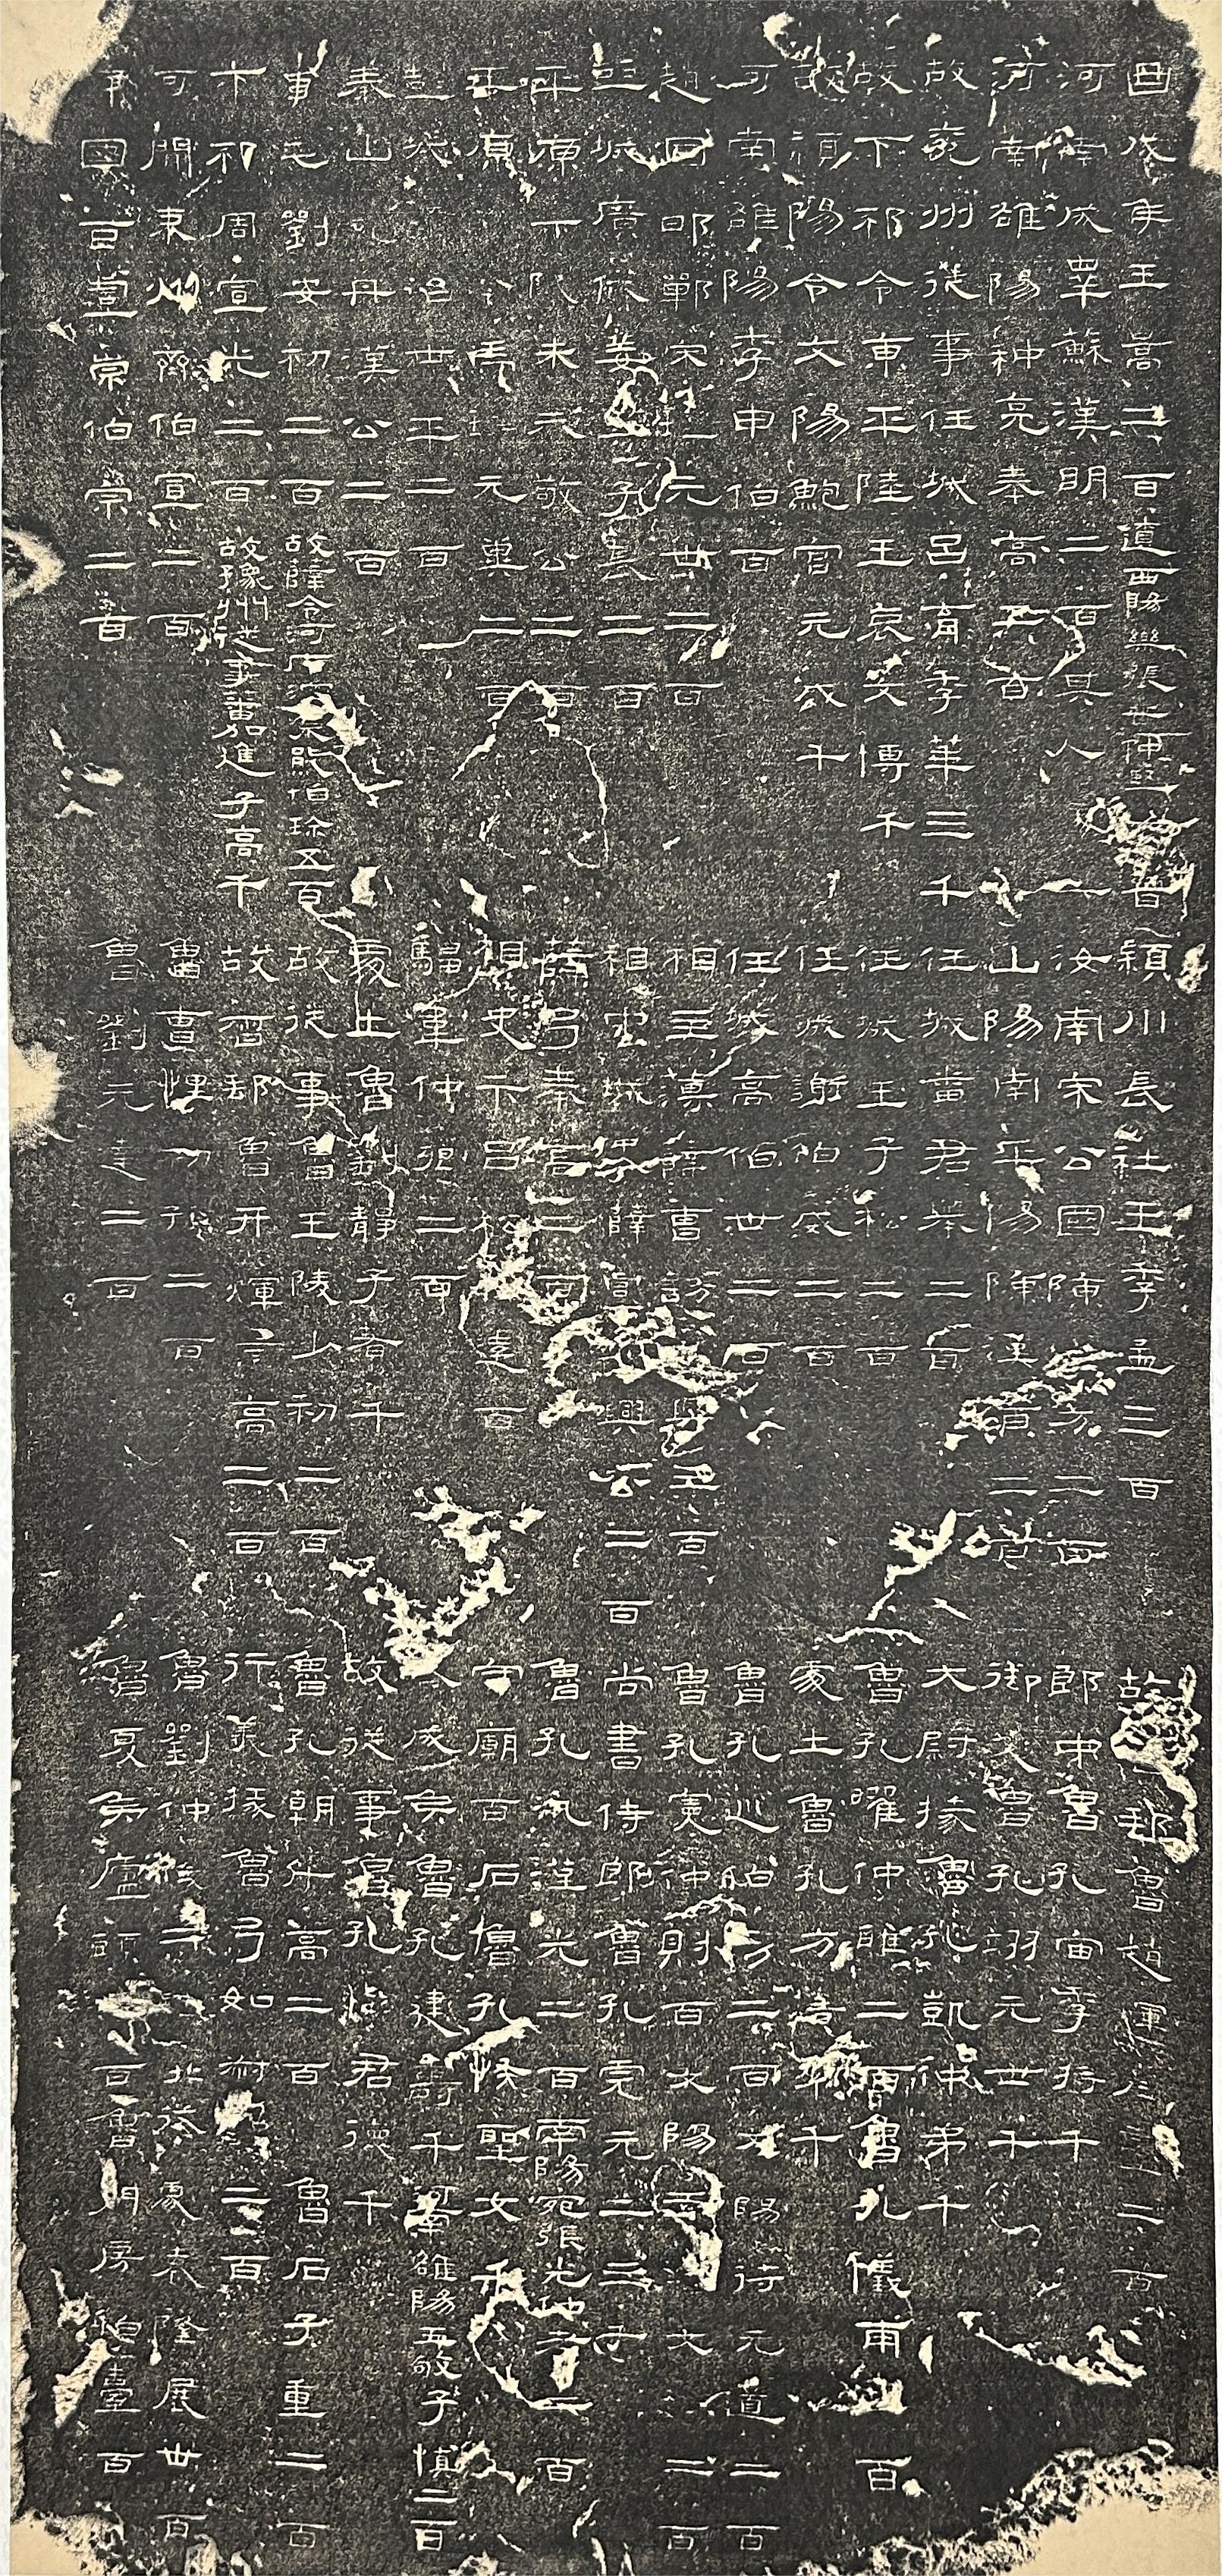 曲成侯王暠二百遼西陽樂張普仲堅二百
河南成睪蘇漢明二百其人處士
河南雒陽种亮奉高五百
故兗州從事任城呂育季華三千
故下邳令東平陸王褒文博千
故潁陽令文陽鮑宮元威千
河南雒陽李申伯百
趙國邯鄲宋瑱元世二百
彭城廣戚姜尋子長二百
平原樂陵朱恭敬公二百
平原濕陰馬瑤元冀二百
彭城龔治世平二百
泰山鮑丹漢公二百
京兆劉安初二百故薛令河內溫朱熊伯珍五百
下邳周宣光二百故豫州從事蕃加進子高千
河間束州齊伯宣二百
陳國苦虞崇伯宗二百
潁川長社王季孟三百
汝南宋公國陳漢方二百
山陽南平陽陳漢甫二百
任城番君舉二百
任城王子松二百
任城謝伯威二百
任城高伯世二百
相主簿薛曹訪濟興三百
相中賊史薛虞韶興公二百
薛弓奉高二百
相史卞呂松遠百
騶韋仲卿二百
處士魯劉靜子著千
故從事魯王陵少初二百
故督郵魯幵煇景高二百
魯曹悝初孫二百
魯劉元達二百
故督郵魯趙煇彥臺二百
郎中魯孔宙季將千
御史魯孔翊元世千
大尉掾魯孔凱仲弟千
魯孔曜仲雅二百魯孔儀甫二百
處士魯孔方廣率千
魯孔巡伯男二百文陽蔣元道二百
魯孔憲仲則百文陽王逸文豫二百
尚書侍郎魯孔彪元上三千
魯孔汎漢光二百南陽宛張光仲孝二百
守廟百石魯孔恢聖文千
褒成侯魯孔建壽千河南雒陽王敬子慎二百
故從事魯孔樹君德千
魯孔朝升高二百魯石子重二百
行義掾魯弓如叔都二百
魯劉仲俊二百北海劇袁隆展世百
魯夏侯廬頭二百魯周房伯臺百